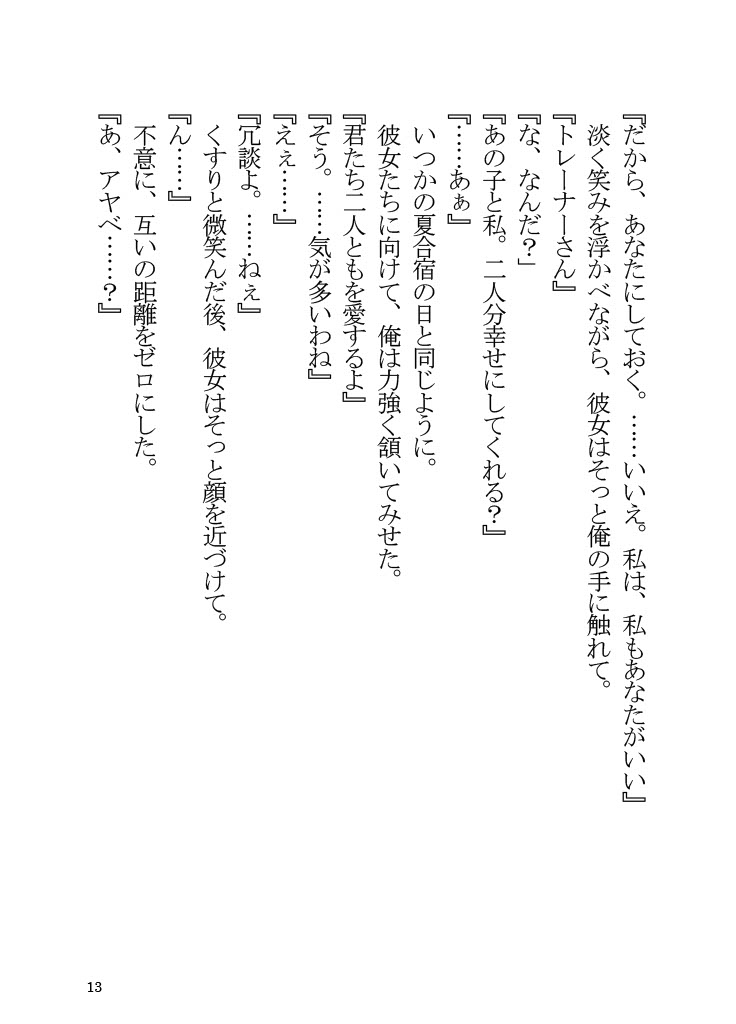 『だから、あなたにしておく。……いいえ。私は、私もあなたがいい』
淡く笑みを浮かべながら、彼女はそっと俺の手に触れて。
『トレーナーさん』
『な、なんだ？」
『あの子と私。二人分幸せにしてくれる？』
『……あぁ』
いつかの夏合宿の日と同じように。
彼女たちに向けて、俺は力強く頷いてみせた。
『君たち二人ともを愛するよ』
『そう。……気が多いわね』
『えぇ……』
『冗談よ。……ねぇ』
くすりと微笑んだ後、彼女はそっと顔を近づけて。
『ん……』
不意に、互いの距離をゼロにした。
『あ、アヤベ……？』
13